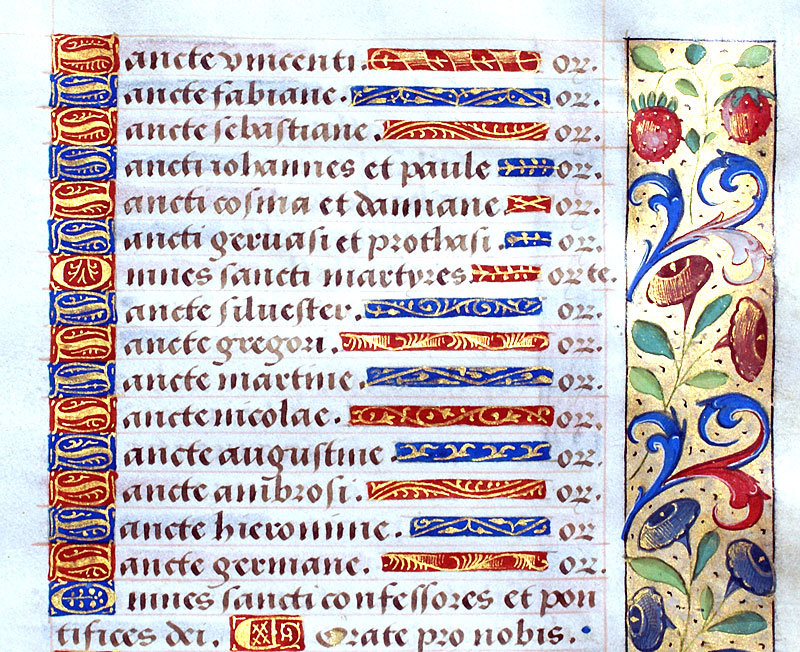 Sancte vincenti. or.
Sancte fabiane. or.
Sancte sebastiane. or.
Sancti iohannes et paule or.
Sancti cosma et damiane. or.
Sancti geruasi et prothasi. or.
Omnes sancti martyres. orte.
Sancte siluester. or.
Sancte gregori. or.
Sancte martine. or.
Sancte nicolae. or.
Sancte augustine. or.
Sancte ambrosi. or.
Sancte hieronime. or
Sancte germane. or.
Omnes sancti confessores et pon
tifices dei. Orate pro nobis.